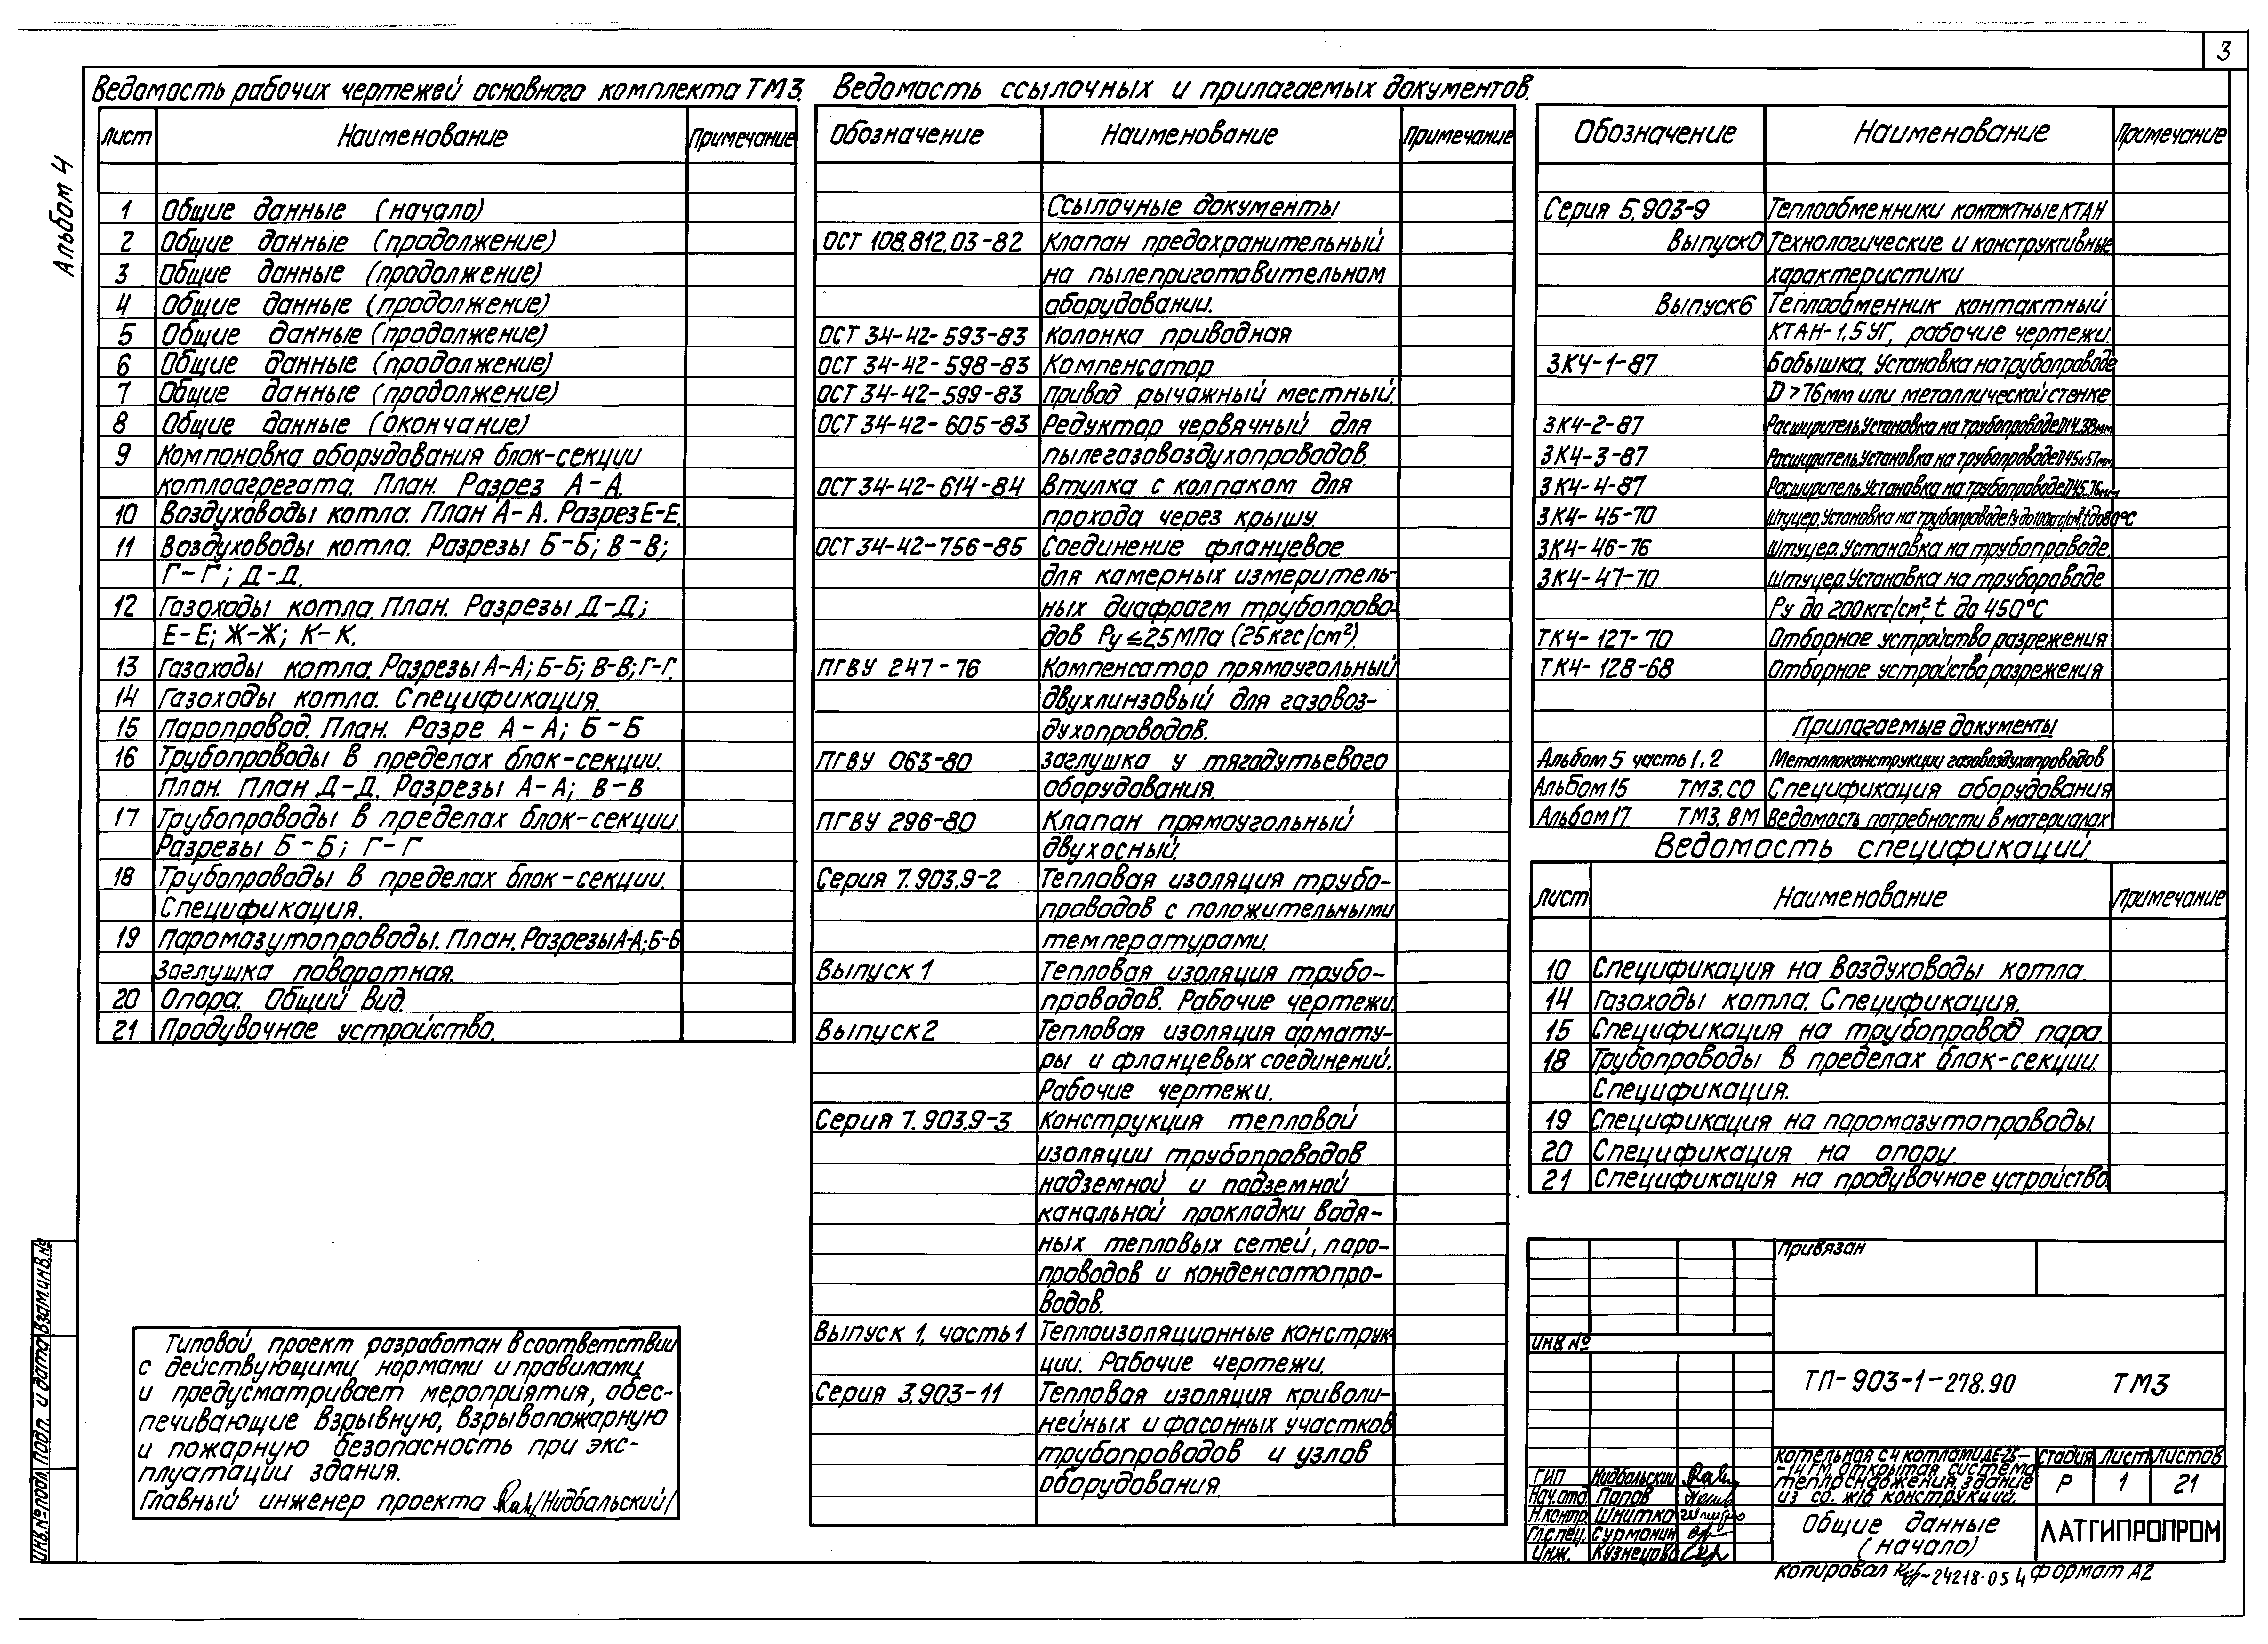 3
Альбом 4
Ведомость рабочих чертежей основного комплекта ТМ3.
Лист Наименование Примечание
1 Общие данные (начало)
2 Общие данные (продолжение)
3 Общие данные (продолжение)
4 Общие данные (продолжение)
5 Общие данные (продолжение)
6 Общие данные (продолжение)
7 Общие данные (продолжение)
8 Общие данные (окончание)
9 Компоновка оборудования блок-секции
котлоагрегата. План. Разрез А-А.
10 Воздуховоды котла. План А-А. Разрез Е-Е.
11 Воздуховоды котла. Разрезы Б-Б; В-В;
Г-Г; Д-Д.
12 Газоходы котла. План. Разрезы Д-Д;
Е-Е; Ж-Ж; К-К.
13 Газоходы котла. Разрезы А-А; Б-Б; В-В; Г-Г.
14 Газоходы котла. Спецификация.
15 Паропровод. План. Разре А-А; Б-Б
16 Трубопроводы в пределах блок-секции.
План. План Д-Д. Разрезы А-А; В-В
17 Трубопроводы в пределах блок-секции.
Разрезы Б-Б; Г-Г
18 Трубопроводы в пределах блок-секции.
Спецификация.
19 Паромазутопроводы. План. Разрезы А-А; Б-Б
Заглушка поворотная.
20 Опора. Общий вид.
21 Продувочное устройство.
Типовой проект разработан в соответствии
с действующими нормами и правилами
и предусматривает мероприятия, обес-
печивающие взрывную, взрывопожарную
и пожарную безопасность при экс-
плуатации здания.
Главный инженер проекта /Нидбальский/
Ведомость ссылочных и прилагаемых документов.
Обозначение Наименование Примечание
Ссылочные документы
ОСТ 108.812.03-82 Клапан предохранительный
на пылеприготовительном
оборудовании.
ОСТ 34-42-593-83 Колонка приводная
ОСТ 34-42-598-83 Компенсатор
ОСТ 34-42-599-83 Привод рычажный местный.
ОСТ 34-42-605-83 Редуктор червячный для
пылегазовоздухопроводов.
ОСТ 34-42-614-84 Втулка с колпаком для
прохода через крышу
ОСТ 34-42-756-85 Соединение фланцевое
для камерных измеритель-
ных диафрагм трубопрово-
дов Ру ≤ 2,5 МПа (25 кгс/см²).
ПГВУ 247-76 Компенсатор прямоугольный
двухлинзовый для газовоз-
духопроводов.
ПГВУ 063-80 Заглушка у тягодутьевого
оборудования.
ПГВУ 296-80 Клапан прямоугольный
двухосный.
Серия 7.903.9-2 Тепловая изоляция трубо-
проводов с положительными
температурами.
Выпуск 1 Тепловая изоляция трубо-
проводов. Рабочие чертежи.
Выпуск 2 Тепловая изоляция армату-
ры и фланцевых соединений.
Рабочие чертежи.
Серия 7.903.9-3 Конструкция тепловой
изоляции трубопроводов
надземной и подземной
канальной прокладки водя-
ных тепловых сетей, паро-
проводов и конденсатопро-
водов.
Выпуск 1, часть 1 Теплоизоляционные конструк-
ции. Рабочие чертежи.
Серия 3.903-11 Тепловая изоляция криволи-
нейных и фасонных участков
трубопроводов и узлов
оборудования
Обозначение Наименование Примечание
Серия 5.903-9 Теплообменники контактные КТАН
Выпуск 0 Технологические и конструктивные
характеристики
Выпуск 6 Теплообменник контактный
КТАН-1,5 УГ, рабочие чертежи.
ЗК4-1-87 Бобышка. Установка на трубопроводе
D >76мм или металлической стенке
ЗК4-2-87 Расширитель. Установка на трубопроводе D14.38мм
ЗК4-3-87 Расширитель. Установка на трубопроводе D45и57мм
ЗК4-4-87 Расширитель. Установка на трубопроводе D45.76мм
ЗК4-45-70 Штуцер. Установка на трубопроводе Ру до 100кгс/см², t до 80°С
ЗК4-46-76 Штуцер. Установка на трубопроводе.
ЗК4-47-70 Штуцер. Установка на трубороваде
Ру до 200кгс/см², t до 450°С
ТК4-127-70 Отборное устройство разрежения
ТК4-128-68 Отборное устройство разрежения
Прилагаемые документы
Альбом 5 часть 1,2 Металлоконструкции газовоздухопроводов
Альбом 15 ТМ3.СО Спецификация оборудования
Альбом 17 ТМ3.ВМ Ведомость потребности в материалах
Ведомость спецификаций.
Лист Наименование Примечание
10 Спецификация на воздуховоды котла.
14 Газоходы котла. Спецификация.
15 Спецификация на трубопровод пара.
18 Трубопроводы в пределах блок-секции.
Спецификация.
19 Спецификация на паромазутопроводы.
20 Спецификация на опору.
21 Спецификация на продувочное устройство.
Привязан
Инв. №
ТП-903-1-278.90 ТМ3
Котельная с 4 котлами ДЕ-25-
-14ГМ открытая система
теплоснабжения. Здание
из сб. ж/б конструкций.
Стадия Лист Листов
Р 1 21
ГИП Нидбальский
Нач.отд. Попов
Н.контр. Шнитко
Гл.спец. Сурмонин
Инж. Кузнецова
Общие данные
(начало)
ЛАТГИПРОПРОМ
Копировал 24218-05 4 Формат А2
Инв.№ подл. Подп. и дата Взам.инв.№